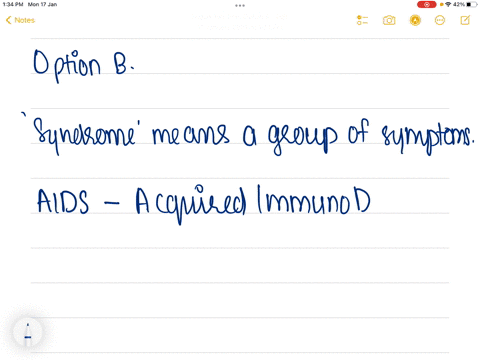 1:34 PM Mon 17 Jan
42%
Notes
Option B.
'Syndrome' means a group of symptoms.
AIDS – Acquired ImmunoD